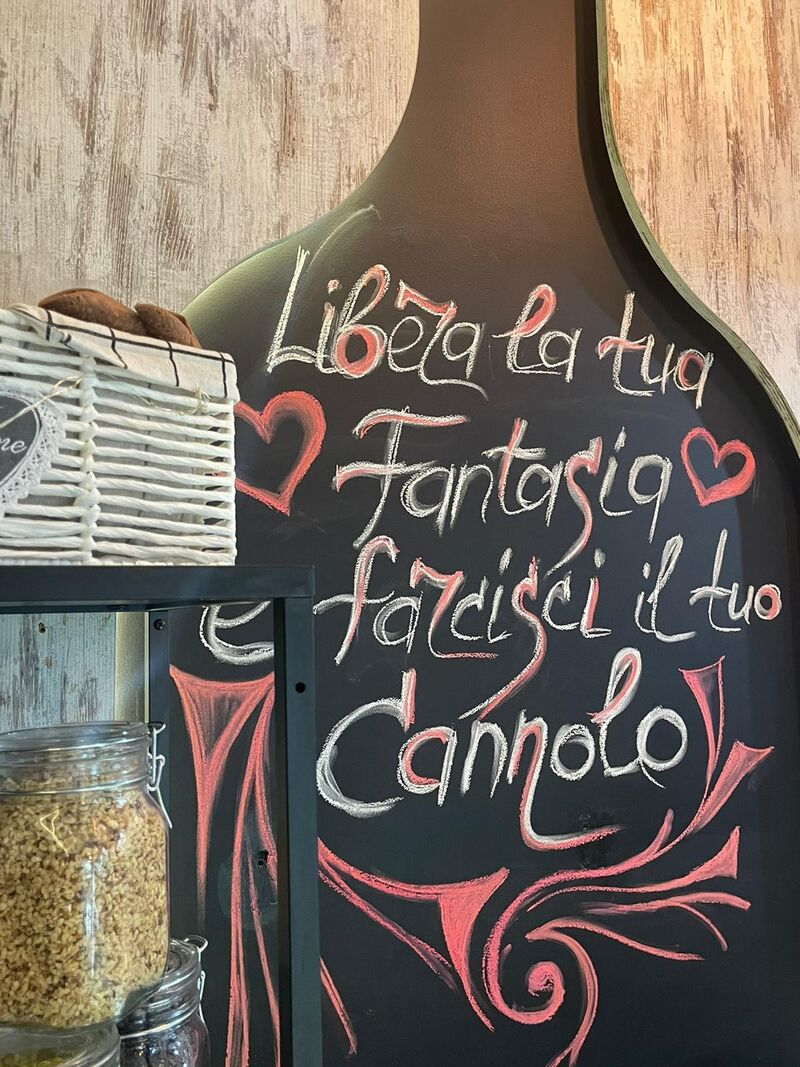 Libera la tua
Fantasia
e farcisci il tuo
Cannolo